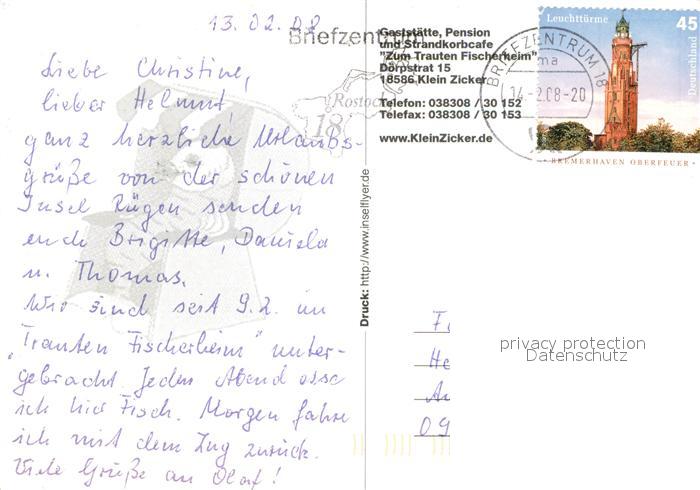 13.02.08
Liebe Christine,
lieber Helmut,
ganz herzliche Urlaubs-
grüße von der schönen
Insel Rügen senden
euch Brigitte, Daniela
u. Thomas.
Wir sind seit 9.2. im
„Trauten Fischerheim" unter-
gebracht. Jeden Abend esse
ich hier Fisch. Morgen fahre
ich mit dem Zug zurück.
Viele Grüße an Olaf!
Briefzentrum
Rostock
18
Gaststätte, Pension
und Strandkorbcafe
"Zum Trauten Fischerheim"
Dörpstrat 15
18586 Klein Zicker
Telefon: 038308 / 30 152
Telefax: 038308 / 30 153
www.KleinZicker.de
Druck: http://www.inselflyer.de
BRIEFZENTRUM 18
ma
14.-2.08-20
Leuchttürme
45
Deutschland
BREMERHAVEN OBERFEUER
He
09
privacy protection
Datenschutz